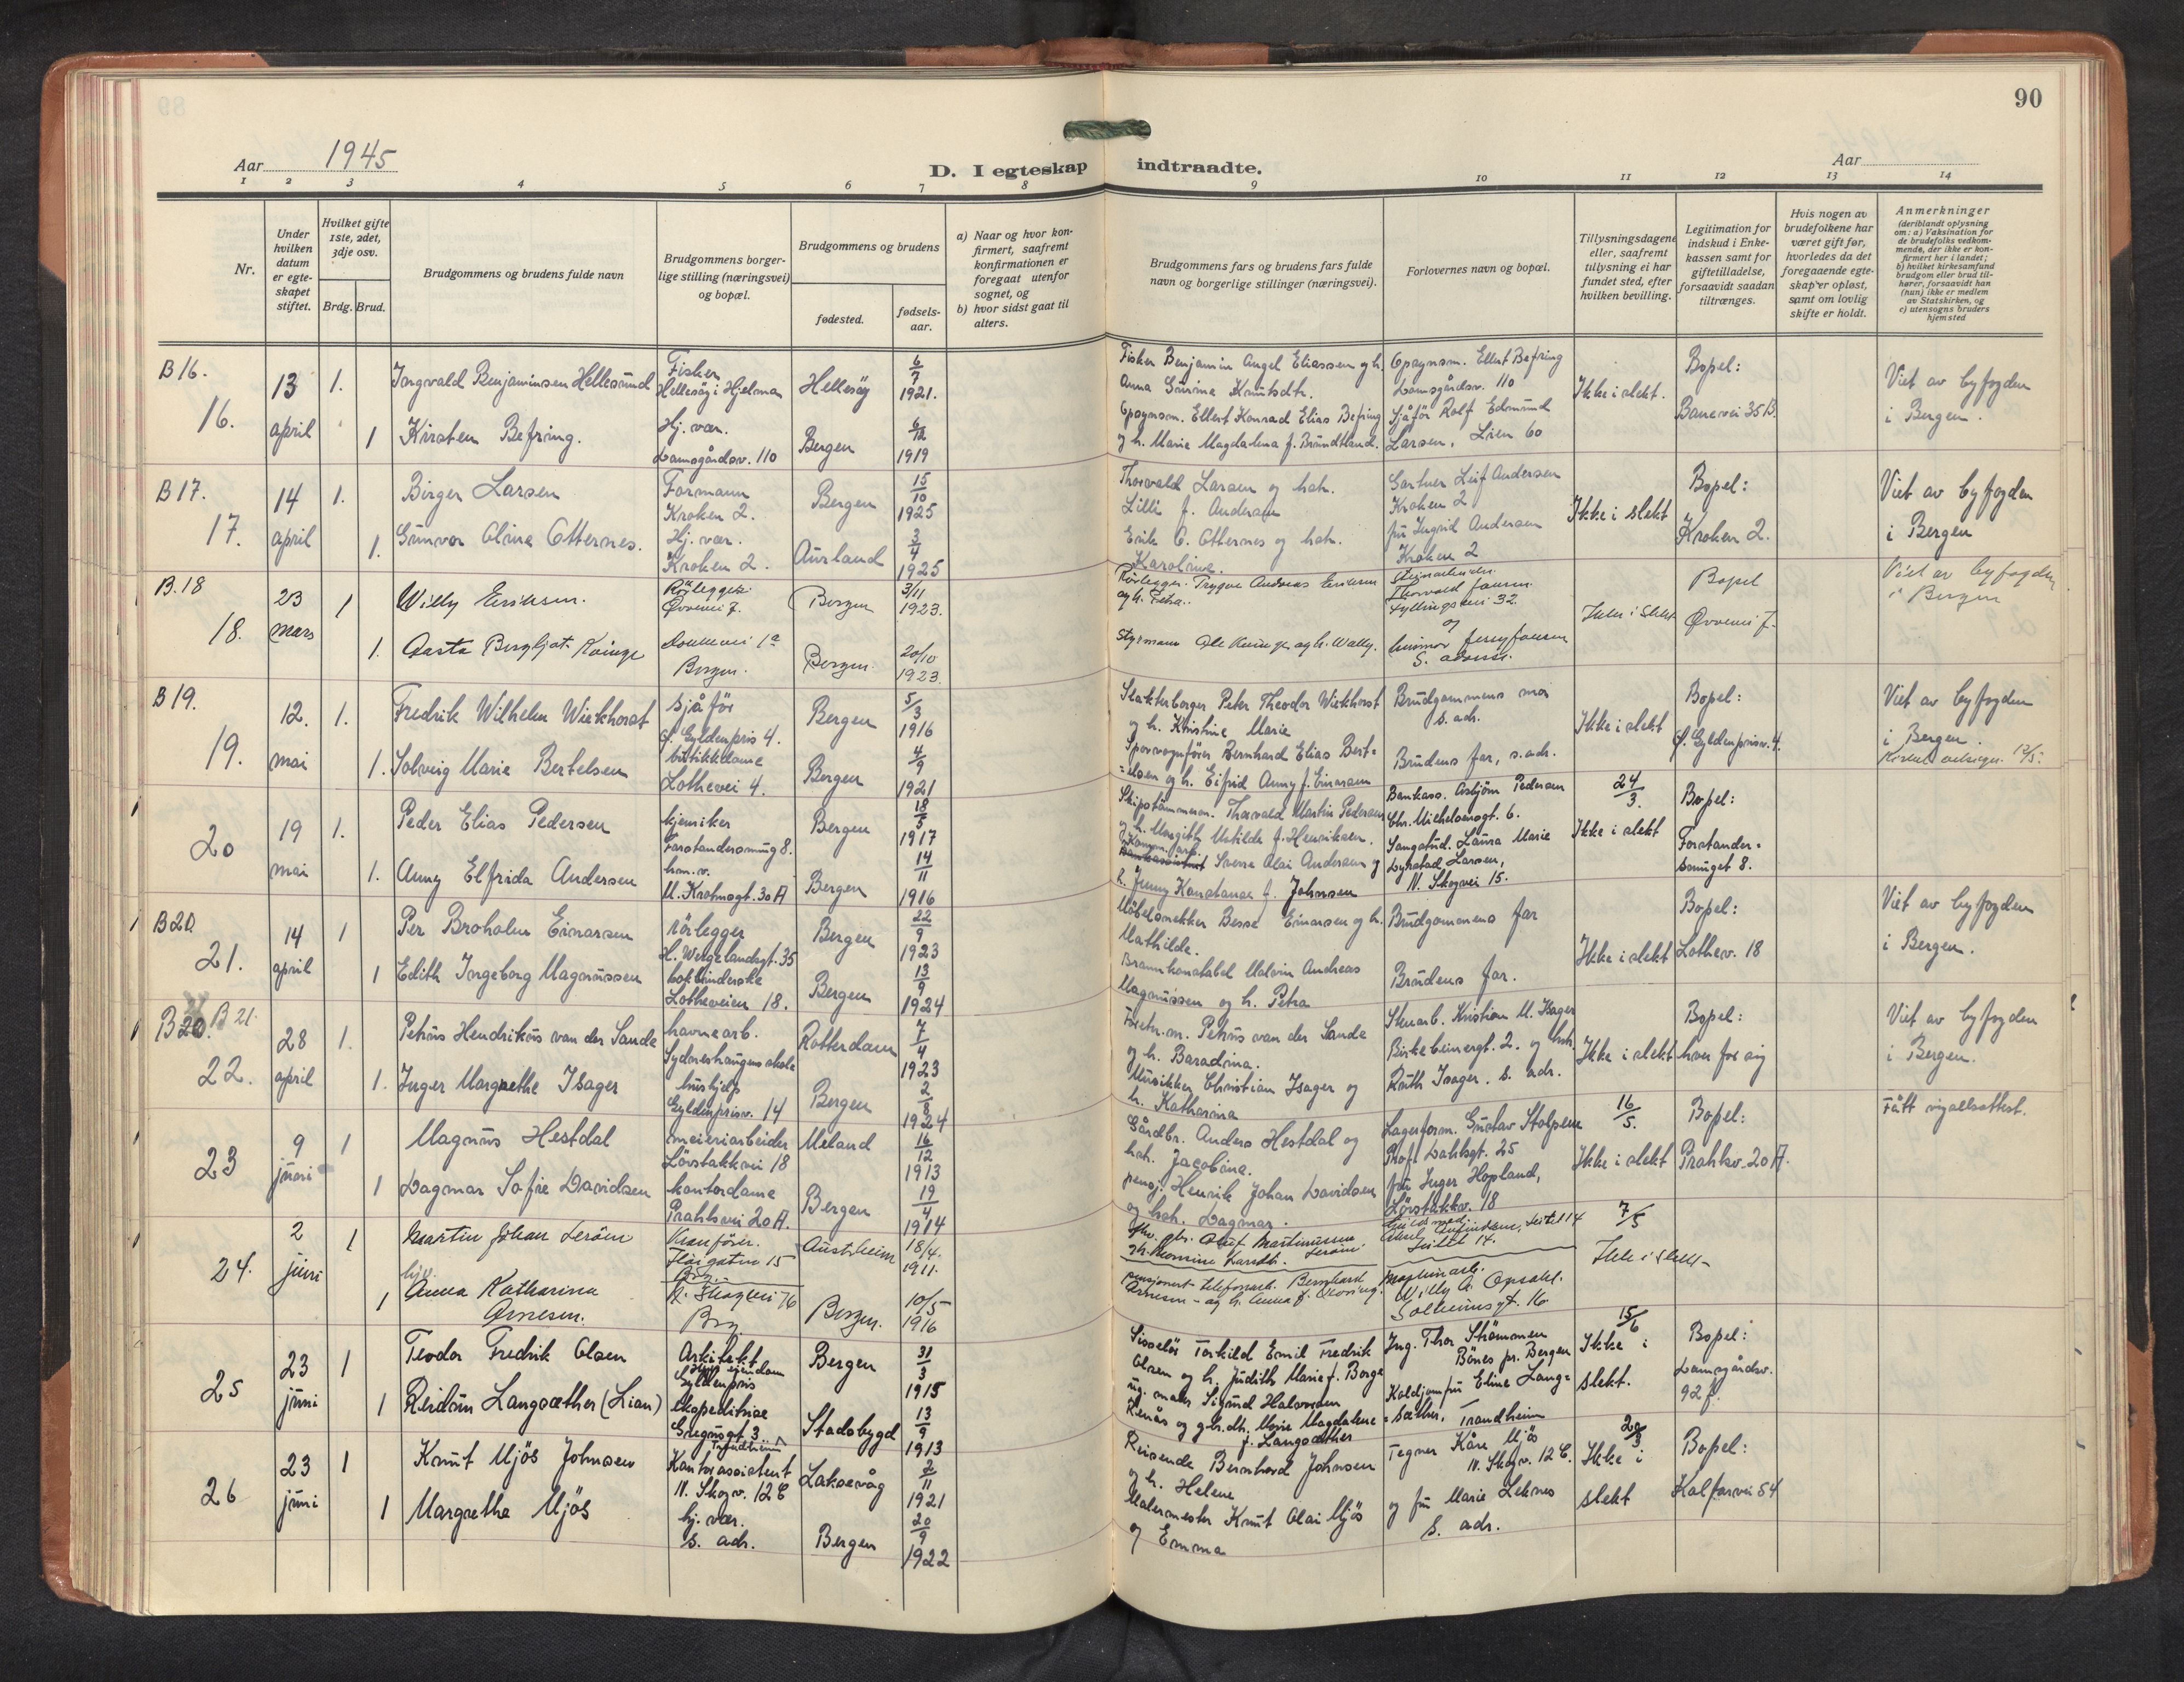 90
Aar 1945
D. I egteskap indtraadte.
Aar
1 2 3 4 5 6 7 8 9 10 11 12 13 14
Nr.
Under hvilken datum er egteskapet stiftet.
Hvilket gifte 1ste, 2det, 3dje osv.
Brdg. Brud.
Brudgommens og brudens fulde navn
Brudgommens borgerlige stilling (næringsvei) og bopæl.
Brudgommens og brudens
fødested.
fødselsaar.
a) Naar og hvor konfirmert, saafremt konfirmationen er foregaat utenfor sognet, og
b) hvor sidst gaat til alters.
Brudgommens fars og brudens fars fulde navn og borgerlige stillinger (næringsvei).
Forlovernes navn og bopæl.
Tillysningsdagene eller, saafremt tillysning ei har fundet sted, efter hvilken bevilling.
Legitimation for indskud i Enkekassen samt for giftetilladelse, forsaavidt saadan tiltrænges.
Hvis nogen av brudefolkene har været gift før, hvorledes da det foregaaende egteskap er opløst, samt om lovlig skifte er holdt.
Anmerkninger (deriblandt oplysning om: a) Vaksination for de brudefolks vedkommende, der ikke er konfirmert her i landet; b) hvilket kirkesamfund brudgom eller brud tilhører, forsaavidt han (hun) ikke er medlem av Statskirken, og c) utensogns bruders hjemsted
B 16.
16.
13 april
1.
Ingvald Benjaminsen Hellesund
Fisker
Hellesöy i Hjelma
Hellesöy
6/7 1921.
1
Kirsten Befring.
Hj. vær.
Damsgårdsv. 110
Bergen
6/12 1919
Fisker Benjamin Angel Eliassen og h.
Anna Gurine Knutsdtr.
Opsynsm. Ellert Konrad Elias Befring
og h. Marie Magdalena f. Brundtland.
Opsynsm. Ellert Befring
Damsgårdsv. 110
Sjåför Rolf Edmund
Larsen, Lien 60
Ikke i slekt.
Bopel:
Banevei 35 B.
Viet av byfogden
i Bergen.
B 17.
17.
14 april
1.
Birger Larsen
Formann
Kroken 2.
Bergen
15/10 1925
1.
Gunvor Olina Otternes.
Hj. vær.
Kroken 2.
Aurland
3/4 1925
Thorvald Larsen og hstr.
Lilli f. Andersen
Erik O. Otternes og hstr.
Karoline.
Gartner Leif Andersen
Kroken 2
fru Ingrid Andersen
Kroken 2
Ikke i slekt
Bopel:
Kroken 2.
Viet av byfogden
i Bergen
B. 18
18.
23 mars
1
Willy Eriksen.
Rörlegger
Övrevei 7.
Bergen
3/11 1923.
1.
Aasta Bergljot Kvinge
1a
Bergen.
Bergen.
20/10 1923.
Rörlegger Trygve Andreas Eriksen
og h. Petra.
Styrmann Ole Kvinge og h. Wally.
Thorvald Jansen
Fyllingsvei 32
og
S. adresse.
Ikke i slekt
Bopel
Övrevei 7.
Viet av byfogden
i Bergen
B 19.
19.
12. mai
1.
Fredrik Wilhelm Wiekhorst
Sjåför
Ø. Gyldenpris 4.
Bergen
5/3 1916
1.
Solveig Marie Bertelsen
butikkdame
Lothevei 4.
Bergen
4/9 1921
Slakterborger Peter Theodor Wiekhorst
og h. Kristine Marie
Sporvognförer Bernhard Elias Bert-
-elsen og h. Eifrid Anny f. Einarsen
Brudgommens mor
s. adr.
Brudens far, s. adr.
Ikke i slekt
Bopel:
Ø. Gyldenprisv. 4.
Viet av byfogden
i Bergen.
12/5.
20
19 mai
1.
Peder Elias Pedersen
kjemiker
Forstandersmug 8.
Bergen
18/5 1917
1.
Anny Elfrida Andersen
hm. v.
M. Krohnsgt. 30 A
Bergen
14/11 1916
Skipstömmerm. Thorvald Martin Pedersen
og h. Margith Matilde f. Henriksen.
Sverre Olai Andersen og
h. Jenny Konstanse f. Johnsen
Bankass. Asbjörn Pedersen
Chr. Michelsensgt. 6.
Sangstud. Laura Marie
Dyrstad Larsen,
N. Skogvei 15.
24/3.
Ikke i slekt
Bopel:
Forstander-
smuget 8.
B 20
21.
14 april
1
Per Broholm Einarsen
rörlegger
H. Wergelandsgt. 35
Bergen
22/9 1923
1
Edith Ingeborg Magnussen
bokbinderske
Lotheveien 18.
Bergen
13/9 1924
Möbelsnekker Besse Einarsen og h.
Mathilde.
Brannkonstabel Malvin Andreas
Magnussen og h. Petra
Brudgommens far
Brudens far.
Ikke i slekt
Bopel:
Lothev. 18
Viet av byfogden
i Bergen.
B 20. B 21.
22.
28 april
1.
Petrus Hendrikus van der Sande
havnearb.
Sydneshaugens skole
Rotterdam
7/4 1923
1.
Inger Margrethe Isager
hushjelp
Gyldenprisv. 14
Bergen
2/8 1924
Petrus van der Sande
og h. Baradina.
Musikker Christian Isager og
h. Katharina
Kristian M. Isager
Birkebeinergt. 2. og hst.
Ruth Isager. s. adr.
Ikke i slekt
Bopel:
hver for sig
Viet av byfogden
i Bergen.
Fått vigselsattest.
23
9 juni
1
Magnus Hestdal
meieriarbeider
Lövstakkvei 18
Meland
16/12 1913
1
Dagmar Sofie Davidsen
kontordame
Prahlsvei 20 A.
Bergen
19/4 1914
Gårdbr. Anders Hestdal og
hst. Jacobina.
pensj. Henrik Johan Davidsen
og hst. Dagmar.
Lagerform. Gustav Stolpen
Prof. Dahlsgt. 25
fru Inger Hopland,
Lövstakkv. 18
16/5.
Ikke i slekt
Bopel:
Prahlsv. 20 A.
24.
2 juni
1
Martin Johan Leröen
Kranförer.
15
Brg.
Austrheim
18/4. 1911.
1
Anna Katharina
Arnesen.
N. Skogvei 76
Brg
Bergen.
10/5 1916
br. Oluf Martinussen
Leröen
pensjonert telefonarb. Bernhard
Arnesen - og h. Anna f.
14.
Maskinarb.
Willy A. Opsahl.
Solheimsgt. 16
7/5
Ikke i slekt
25
23 juni
1
Teodor Fredrik Olsen
Arkitekt
Gyldenpris
Bergen
31/3 1915
1
Reidun Langsæther (Lian)
ekspeditrise
3 Trondheim
Stadsbygd
13/9 1913
Torkild Emil Fredrik
Olsen og h. Judith Marie f. Borge
Sigurd Halvorsen
Renås og Marie Magdalene
f. Langsæther
Ing. Thor Strömmen
Bönes pr. Bergen
Koldjomfru Eline Lang-
-sæther, Trondheim
15/6
Ikke i
slekt.
Bopel:
Damsgårdsv.
92 f.
26
23 juni
1
Knut Mjös Johnsen
Kontorassistent
N. Skogv. 12 C
Laksevåg
2/11 1921
1
Margrethe Mjös
hj. vær.
s. adr.
Bergen
20/9 1922
Reisende Bernhard Johnsen
og h. Helene
Malermester Knut Olai Mjös
og Emma
Tegner Kåre Mjös
N. Skogv. 12 C.
og fru Marie Leknes
s. adr.
Ikke i
slekt
Bopel:
Kalfarvei 54